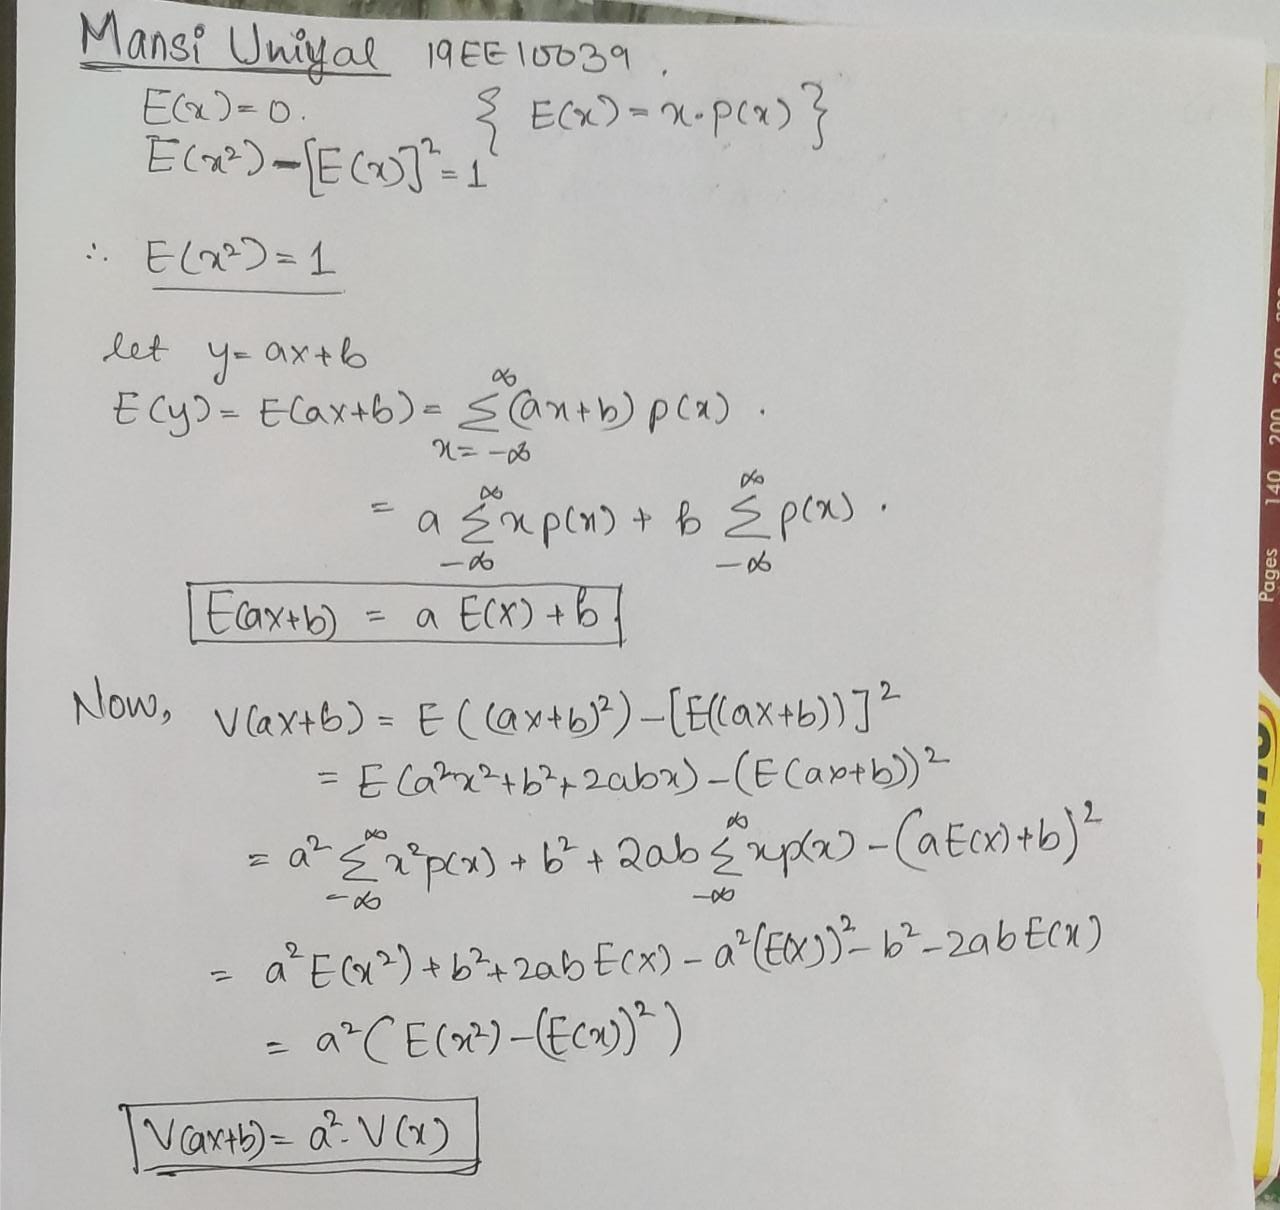 Mansi Uniyal 19EE10039.
E(x)=0. { E(x)=x.p(x) }
E(x²)-[E(x)]²=1
∴ E(x²)=1
let y=ax+b
E(y)= E(ax+b)= ∞ Σ x=-∞ (ax+b) p(x).
= a ∞ Σ -∞ x p(x) + b ∞ Σ -∞ p(x).
E(ax+b) = a E(X)+b
Now, V(ax+b) = E((ax+b)²)-[E((ax+b))]²
= E(a²x²+b²+2abx)-(E(ax+b))²
= a² ∞ Σ -∞ x²p(x) + b² + 2ab ∞ Σ -∞ xp(x) - (aE(x)+b)²
= a²E(x²)+b²+2abE(x)-a²(E(x))²-b²-2abE(x)
= a²(E(x²)-(E(x))²)
V(ax+b)= a². V(x)
Pages 140 200 240